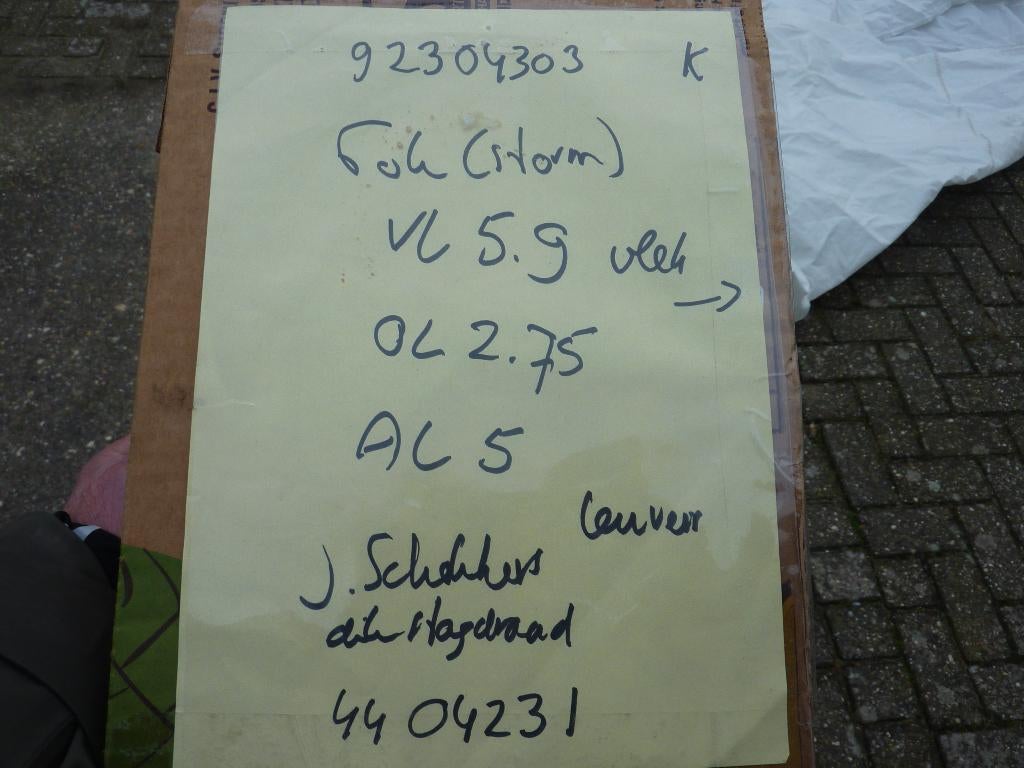 92304303 K
Fok (storm)
VL 5.9 vlek →
OL 2.75
AL 5
Leuver
J. Schokkers
dik stagdraad
4404231